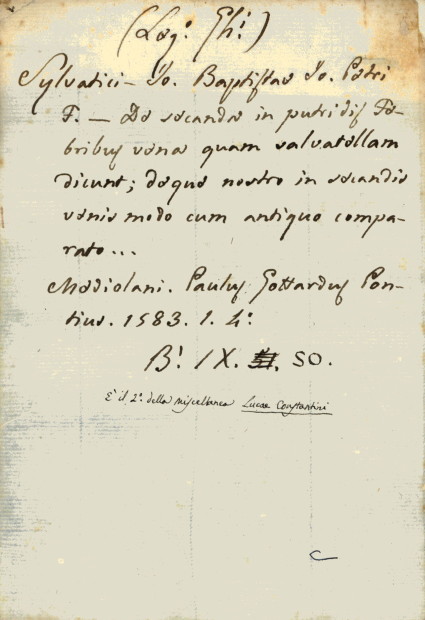 (Leg. Ghi.)
Sylvatici - Io. Baptistae Io. Petri
F. — De secanda in putridis Fe-
bribus vena quam salvatellam
dicunt; deque nostro in secandis
venis modo cum antiquo compa-
rato...
Mediolani. Paulus Gottardus Pon-
tius. 1583. 1. 4º
B. IX. SO.
E' il 2º della miscellanea Lucae Constantini
C